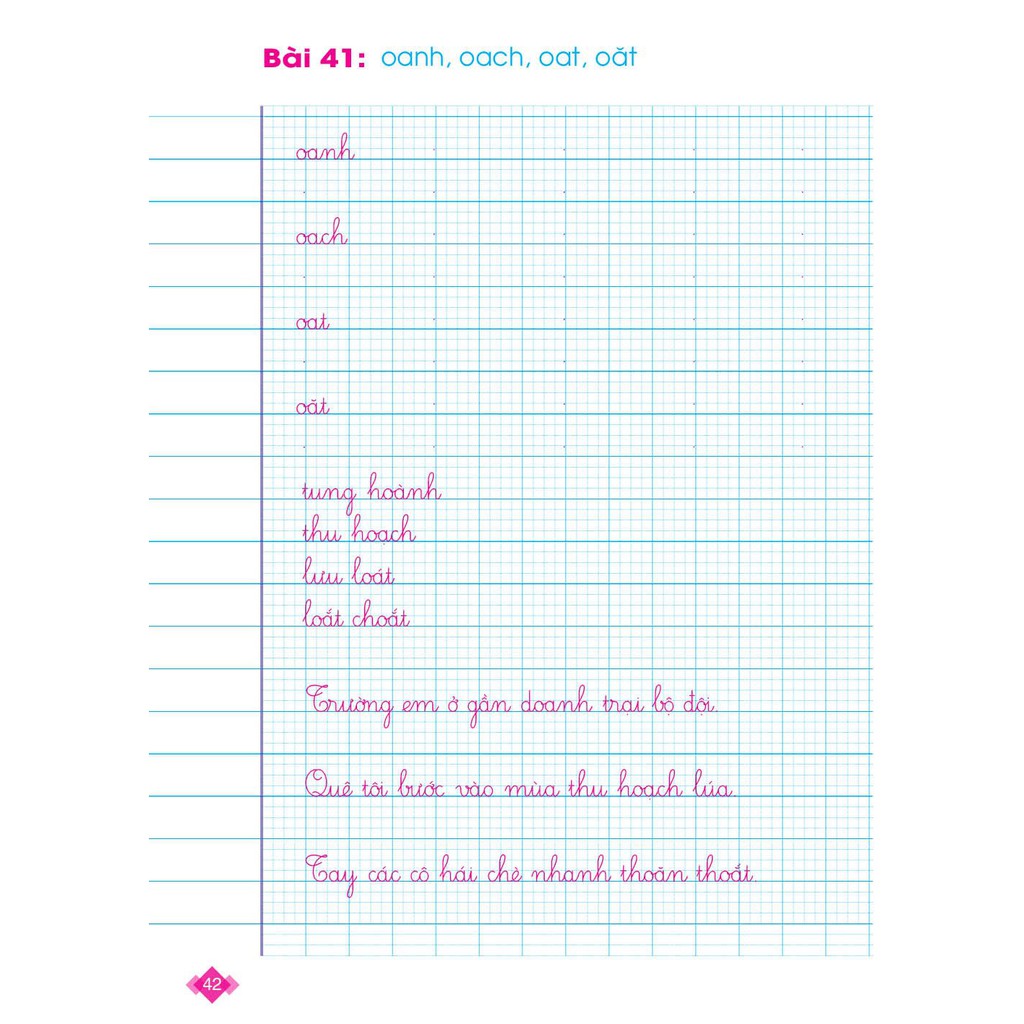 Bài 41: oanh, oach, oat, oăt
oanh
oach
oat
oăt
tung hoành
thu hoạch
lưu loát
loắt choắt
Trường em ở gần doanh trại bộ đội.
Quê tôi bước vào mùa thu hoạch lúa.
Tay các cô hái chè nhanh thoăn thoắt.
42